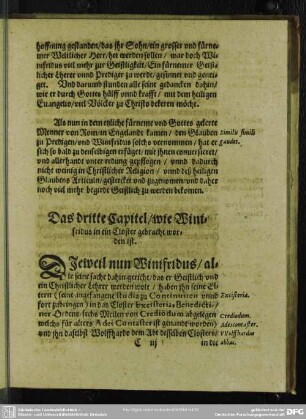 hoffnung gestanden / das ihr Sohn / ein grosser und fürne-
mer Weltlicher Herr / het werden sollen / war doch Wi-
nifridus viel mehr zur Geistligkeit / Ein fürnemer Geist-
licher Lherer unnd Prediger zu werde / gesinnet und genei-
get. Und darumb stunden alle seine gedancken dahin /
wie er durch Gottes hülff unnd krafft / mit dem heiligen
Evangelio / viel Völcker zu Christo bekeren möcht.
Als nun in dem etliche fürneme und Gottes gelerte
Menner von Rom / in Engelandt kamen / den Glauben
zu Predigen / und Winfridus solchs vernommen / hat er
sich so bald zu denselbigen erfüget / mit ihnen conversiret /
und allerhandt unterredung gepflogen / unnd dadurch
nicht wenig in Christlicher Religion / unnd deß heiligen
Glaubens Articuln / gestercket und zugenommen / und daher
noch viel mehr begirdt Geistlich zu werden bekomen.
Similis simili
gaudet.
Das dritte Capitel / wie Wini-
fridus in ein Closter gebracht wor-
den ist.
DJeweil nun Winfridus / al-
le seine sache dahin gericht / das er Geistlich und
ein Christlicher Lehrer werden wolt / haben ihn seine El-
tern (seine angefangene studia zu Continuiren unnd
fort zubringen) in das Closter Excisteria, Benedicti-
ner Ordens / sechs Meilen von Crediodum abgelegen
welchs für alters Adescancaster ist genandt worden /
und ihn daselbst Wolffhardo dem Abt desselben Closters /
Excisteria.
Crediodum.
Adescancaster.
VVolffhardus
abbas.
C iij
in die